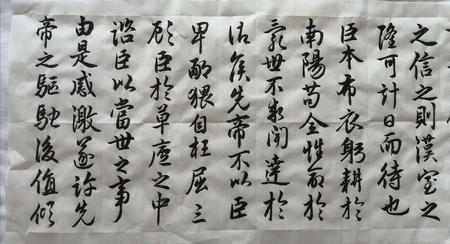 之信之則漢室之
隆可計日而待也
臣本布衣躬耕於
南陽苟全性命於
亂世不求聞達於
諸侯先帝不以臣
卑鄙猥自枉屈三
顧臣於草廬之中
諮臣以當世之事
由是感激遂許先
帝之驅馳後值傾